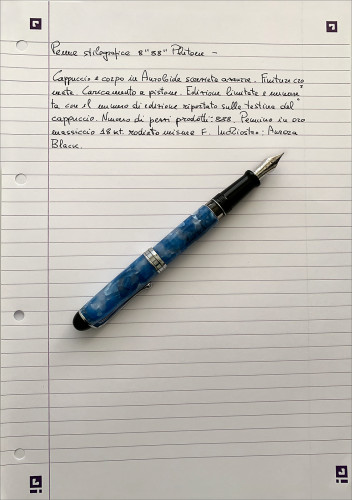 Penna stilografica 8"88" Plutone -
Cappuccio e corpo in Auroloide screziato azzurro. Finiture cro
mate. Caricamento a pistone. Edizione limitata e numera
ta con il numero di edizione riportato sulla testina del
cappuccio. Numero di pezzi prodotti: 888. Pennino in oro
massiccio 18 kt. rodiato misura F. Inchiostro: Aurora
Black.